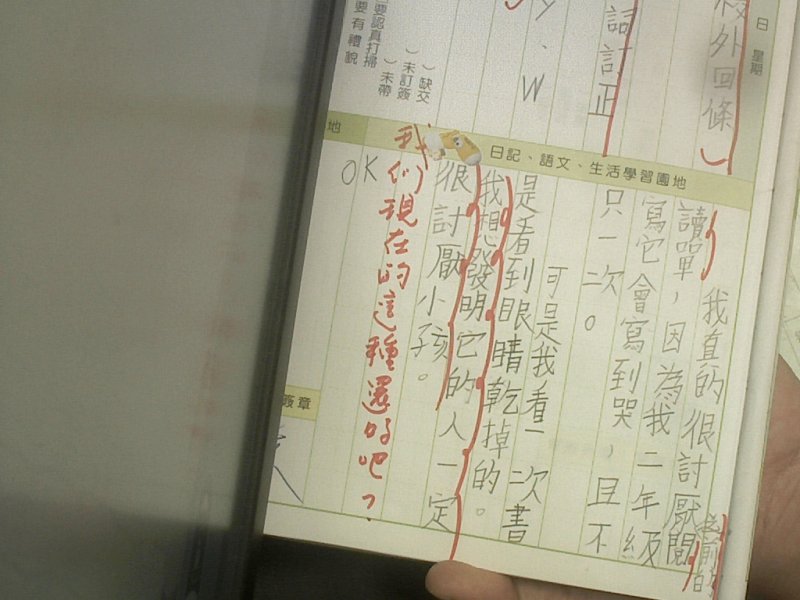 日 星期
校外回條）
詰訂正
y、W
（ ）缺交
（ ）未訂簽
（ ）未帶
要認真打掃
要有禮貌
日記、語文、生活學習園地
我真的很討厭閱
以前的
讀單，因為我二年級
寫它會寫到哭，且不
只一二次。
可是我看一次書
是看到眼睛乾掉的。
我想發明它的人一定
很討厭小孩。
我們現在的這種還好吧？
OK
地
簽章